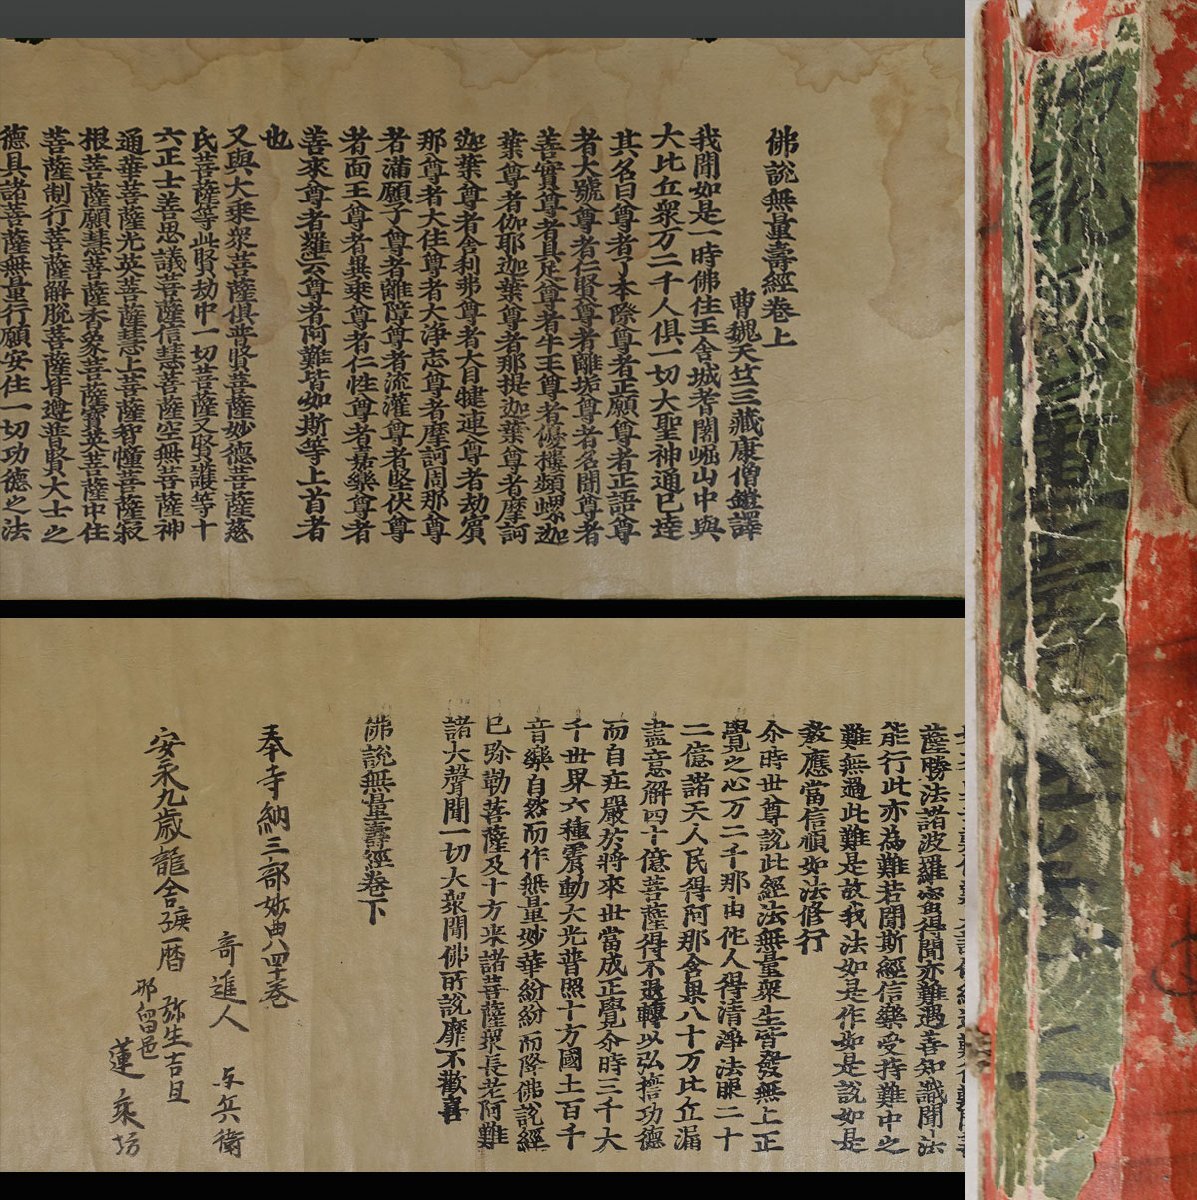 佛說無量壽經卷上
曹魏天竺三藏康僧鎧譯
我聞如是一時佛住王舍城耆闍崛山中與
大比丘衆万二千人俱一切大聖神通已達
其名曰尊者了本際尊者正願尊者正語尊
者大號尊者仁賢尊者離垢尊者名聞尊者
善實尊者具足尊者牛王尊者優樓頻螺迦
葉尊者伽耶迦葉尊者那提迦葉尊者摩訶
迦葉尊者舎利弗尊者大目犍連尊者劫賓
那尊者大住尊者大浄志尊者摩訶周那尊
者滿願子尊者離障尊者流灌尊者堅伏尊
者面王尊者異乘尊者仁性尊者嘉樂尊者
善來尊者羅云尊者阿難皆如斯等上首者
也
又與大乗衆菩薩俱普賢菩薩妙德菩薩慈
氏菩薩等此賢劫中一切菩薩又賢護等十
六正士善思議菩薩信慧菩薩空無菩薩神
通華菩薩光英菩薩慧上菩薩智幢菩薩寂
根菩薩願慧菩薩香象菩薩寶英菩薩中住
菩薩制行菩薩解脫菩薩皆遵普賢大士之
德具諸菩薩無量行願安住一切功德之法
薩勝法諸波羅蜜得聞亦難遇善知識聞法
能行此亦為難若聞斯經信樂受持難中之
難無過此難是故我法如是作如是說如是
教應當信順如法修行
尒時世尊說此經法無量衆生皆發無上正
覺之心万二千那由佗人得清淨法眼二十
二億諸天人民得阿那含果八十万比丘漏
盡意解四十億菩薩得不退轉以弘誓功德
而自莊嚴於將來世當成正覺尒時三千大
千世界六種震動大光普照十方國土百千
音樂自然而作無量妙華紛紛而降佛說經
已弥勒菩薩及十方来諸菩薩衆長老阿難
諸大聲聞一切大衆聞佛所說靡不歡喜
佛說無量壽經卷下
奉寺納三部妙典四十巻
寄進人 与兵衛
安永九歳龍舎 暦 弥生吉旦
那留邑 蓮乗坊